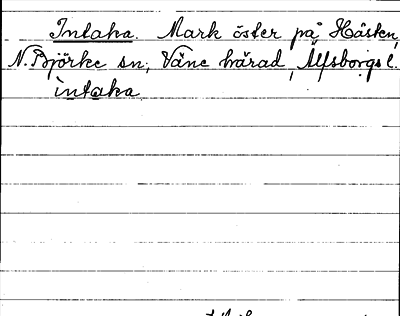 Intaka. Mark öster på Håsten,
N. Björke sn, Väne härad, Älfsborgs l.
intaka